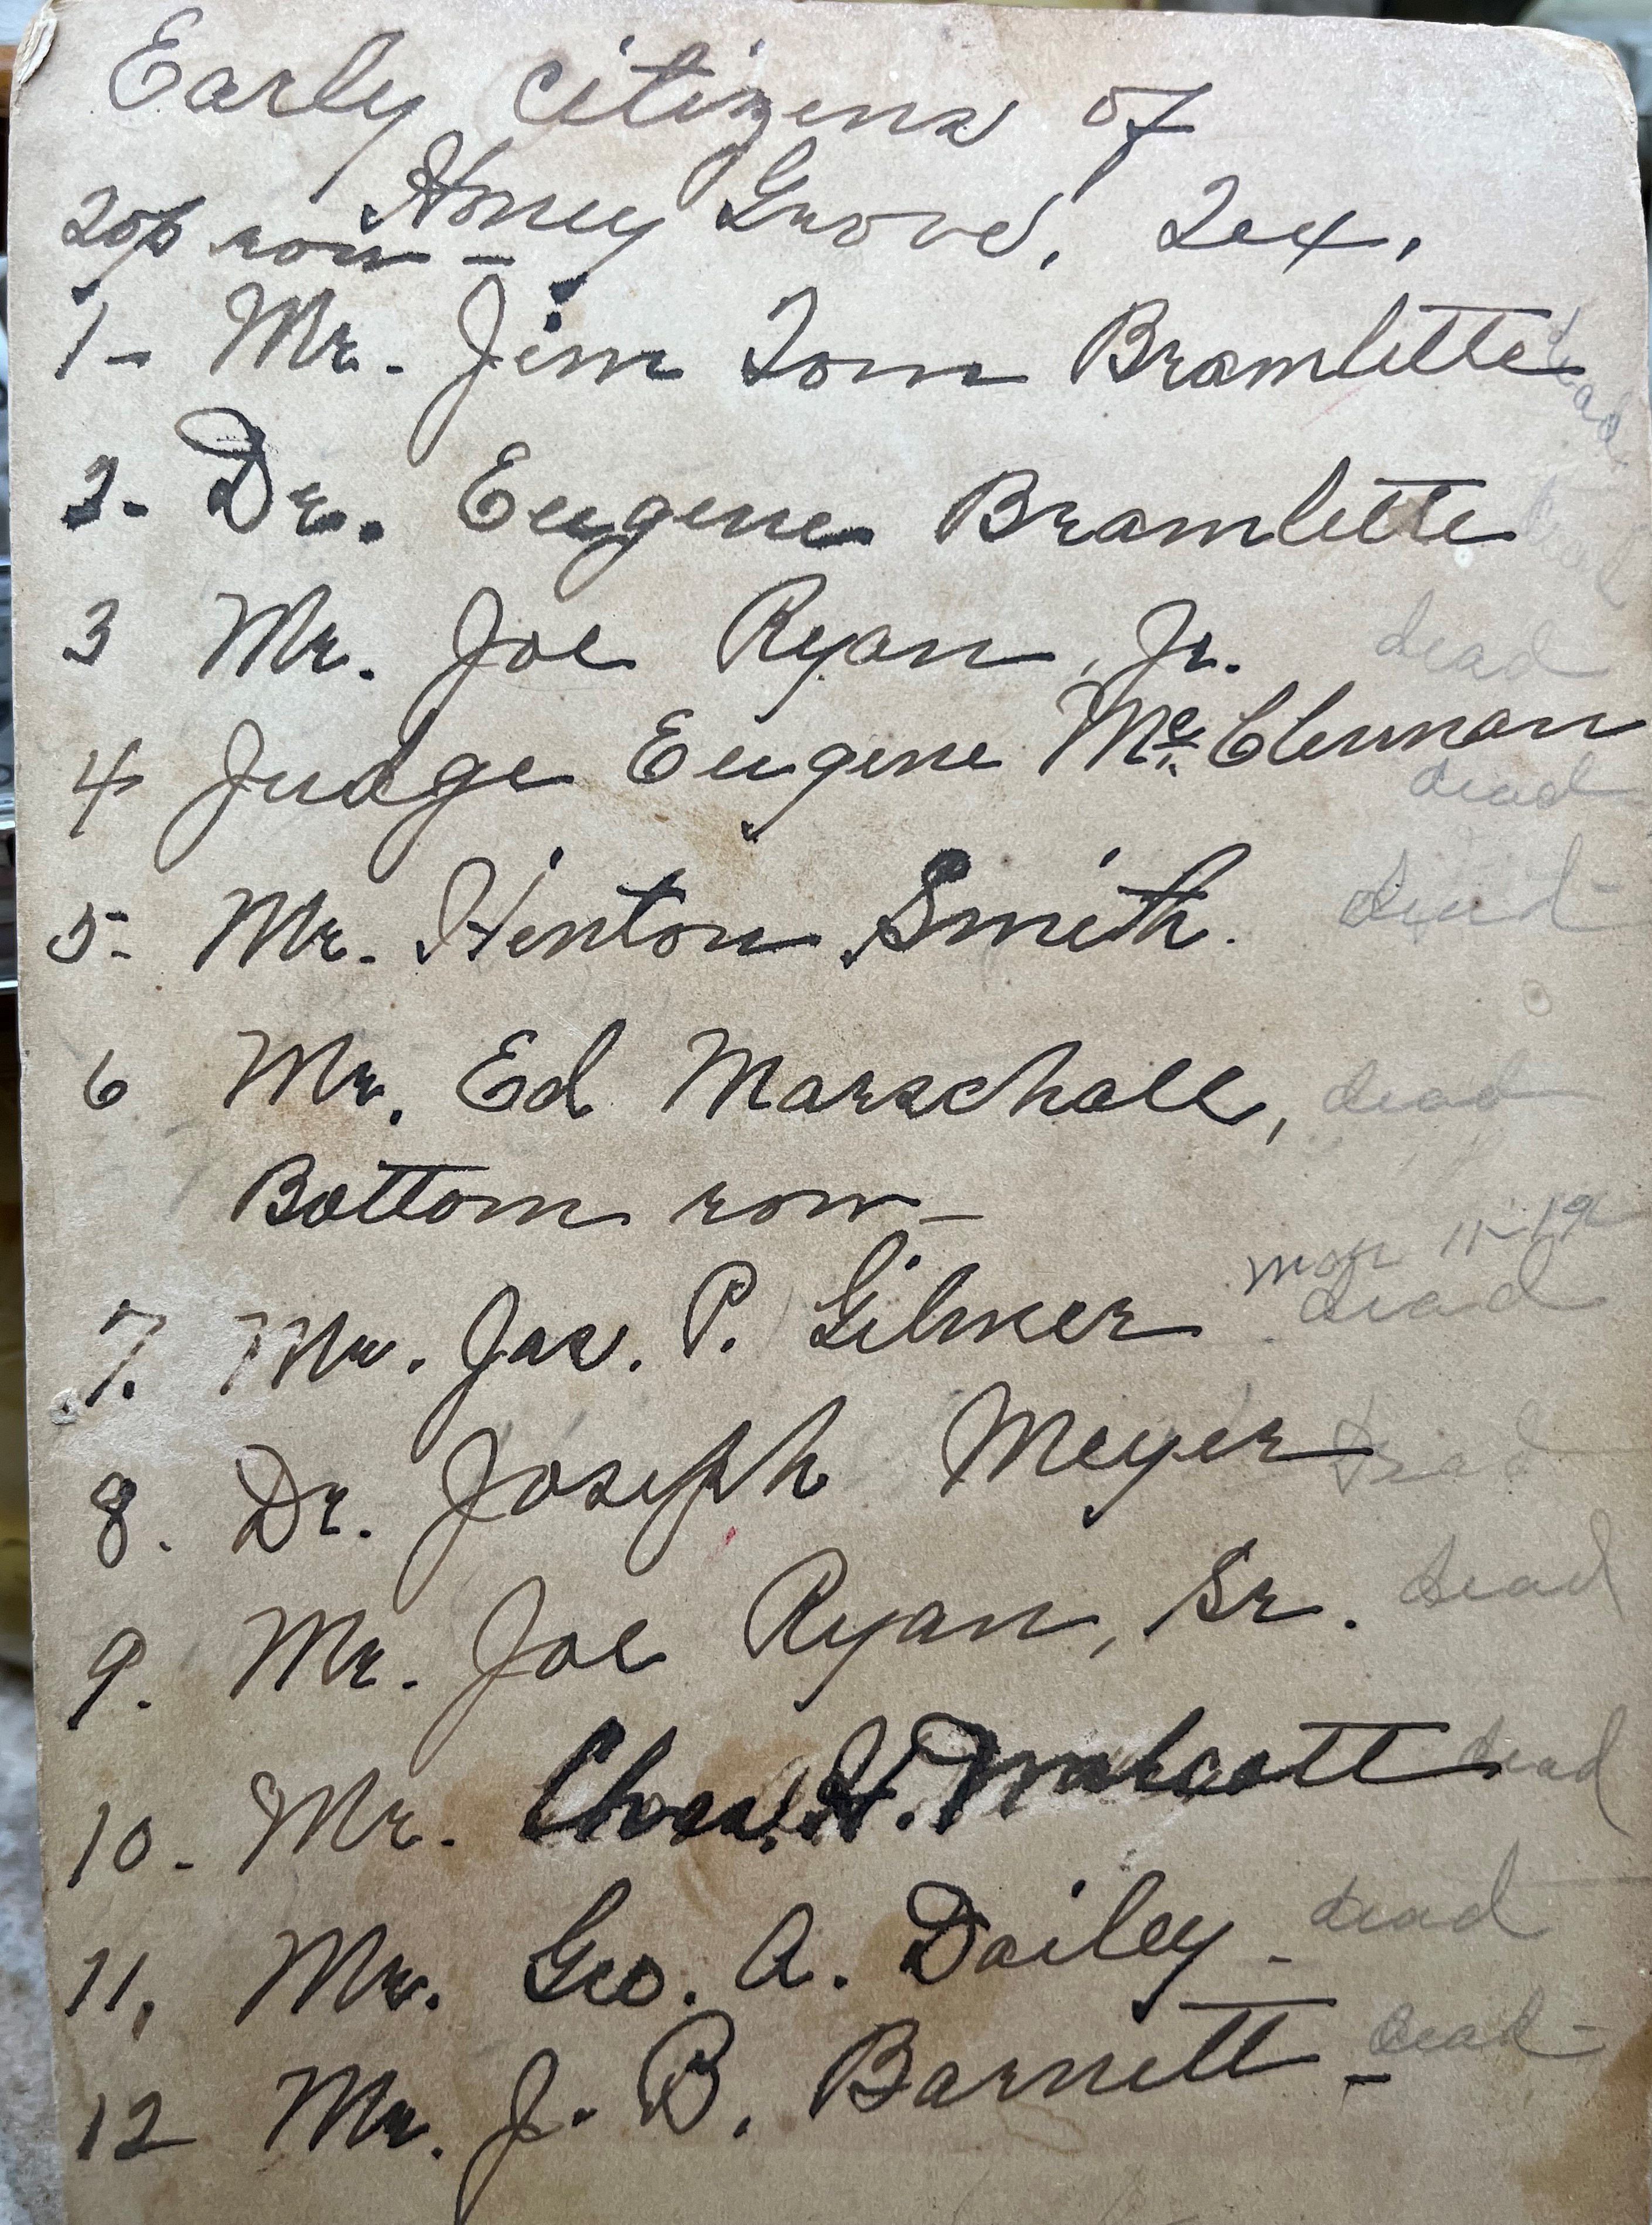 Early citizens of
Honey Grove, Tex.
Top row -
1- Mr. Jim Tom Bramlette dead
2- Dr. Eugene Bramlette dead
3 Mr. Joe Ryan, Jr. dead
4 Judge Eugene McClennan
dead
5- Mr. Hinton Smith. dead
6 Mr. Ed Marschall, dead
Bottom row -
11-19
7. Mr. Jas. P. Gilmer dead
8. Dr. Joseph Meyer dead
9. Mr. Joe Ryan, Sr. dead
10- Mr. Chas. H. Walcott dead
11, Mr. Geo. A. Dailey - dead
12 Mr. J. B. Barnett - dead -